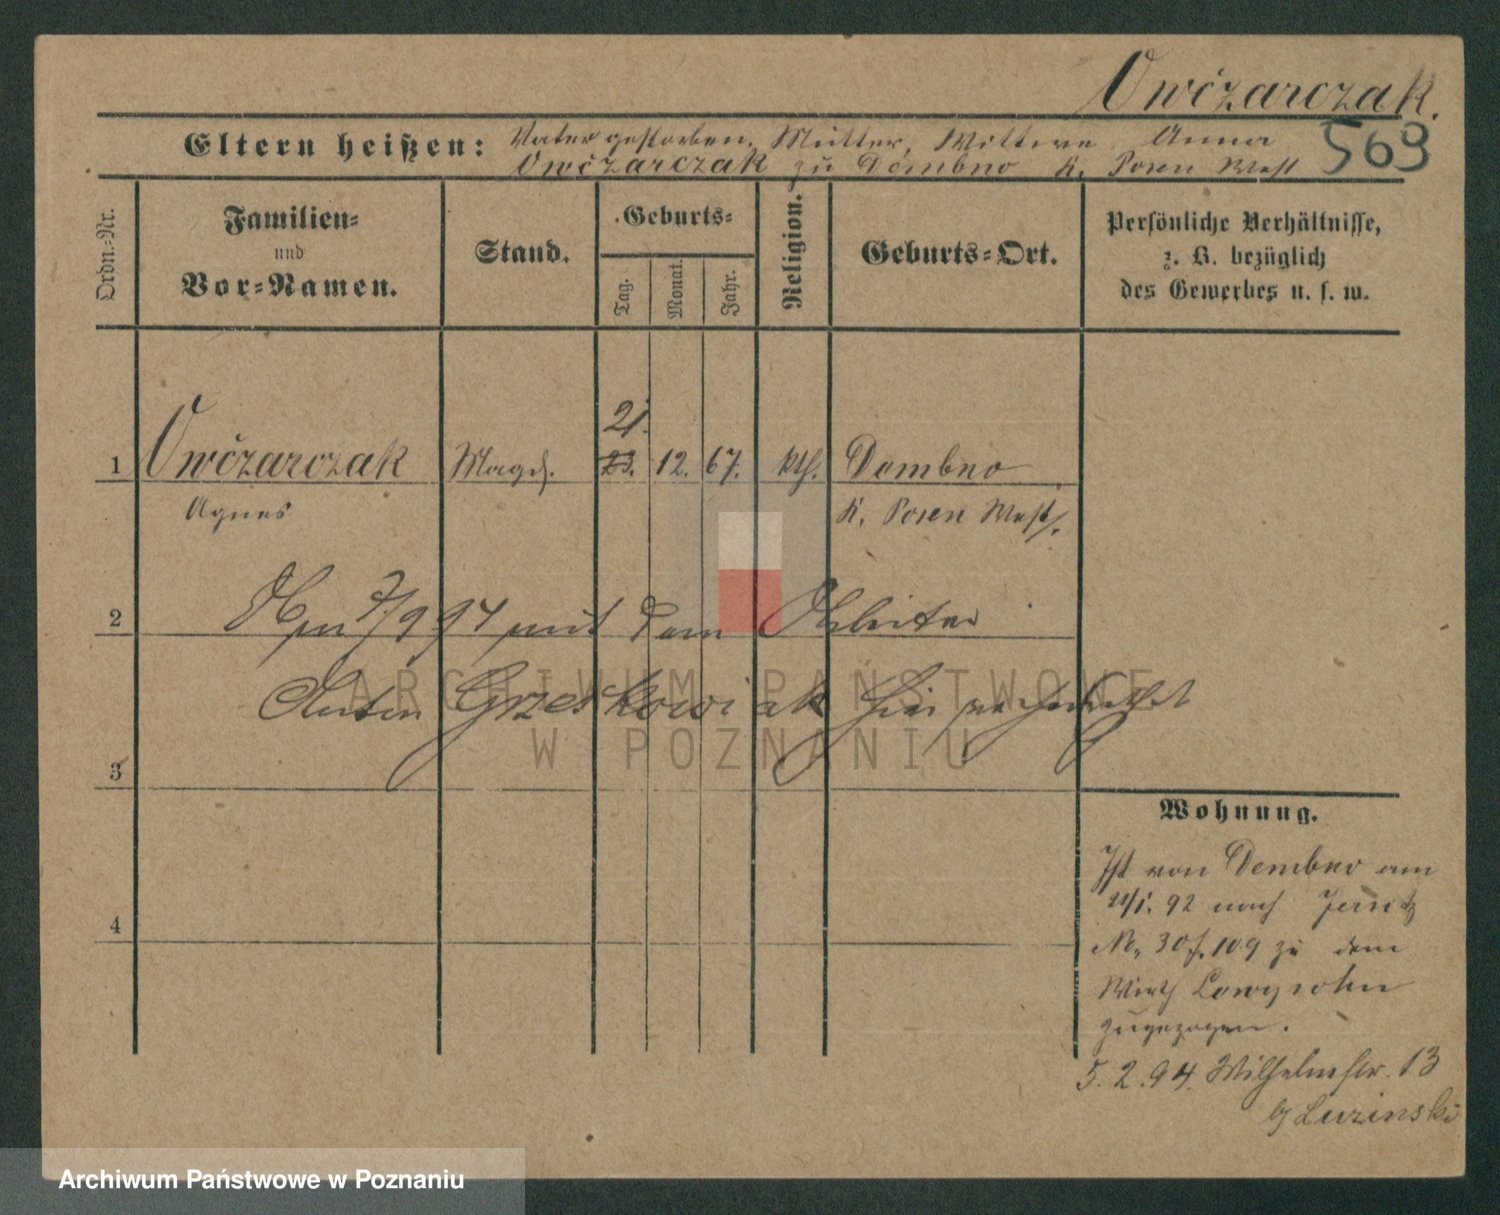 Owčzarczak.
Eltern heißen: Vater gestorben. Mutter, Wittwe Anna
Owčzarczak zu Dembno K. Posen West
569
Ordn.-Nr.
Familien-
und
Vor-Namen.
Stand.
Geburts-
Tag.
Monat.
Jahr.
Religion.
Geburts-Ort.
Persönliche Verhältnisse,
z. B. bezüglich
des Gewerbes u. s. w.
21.
1 Owčzarczak Magd. 23. 12. 67. kth. Dembno
Agnes K. Posen West.
2 Am 7/9 94 mit dem Arbeiter
Anton Grzeskowiak hier
3
4
Wohnung.
Ist von Dembno am
21/1. 92 nach Jersitz
No. 30 f. 109 zu dem
Wirth Lewysohn
zugezogen.
5. 2. 94. Wilhelmstr. 13
b/ Luzinski
ARCHIWUM PAŃSTWOWE
W POZNANIU
Archiwum Państwowe w Poznaniu